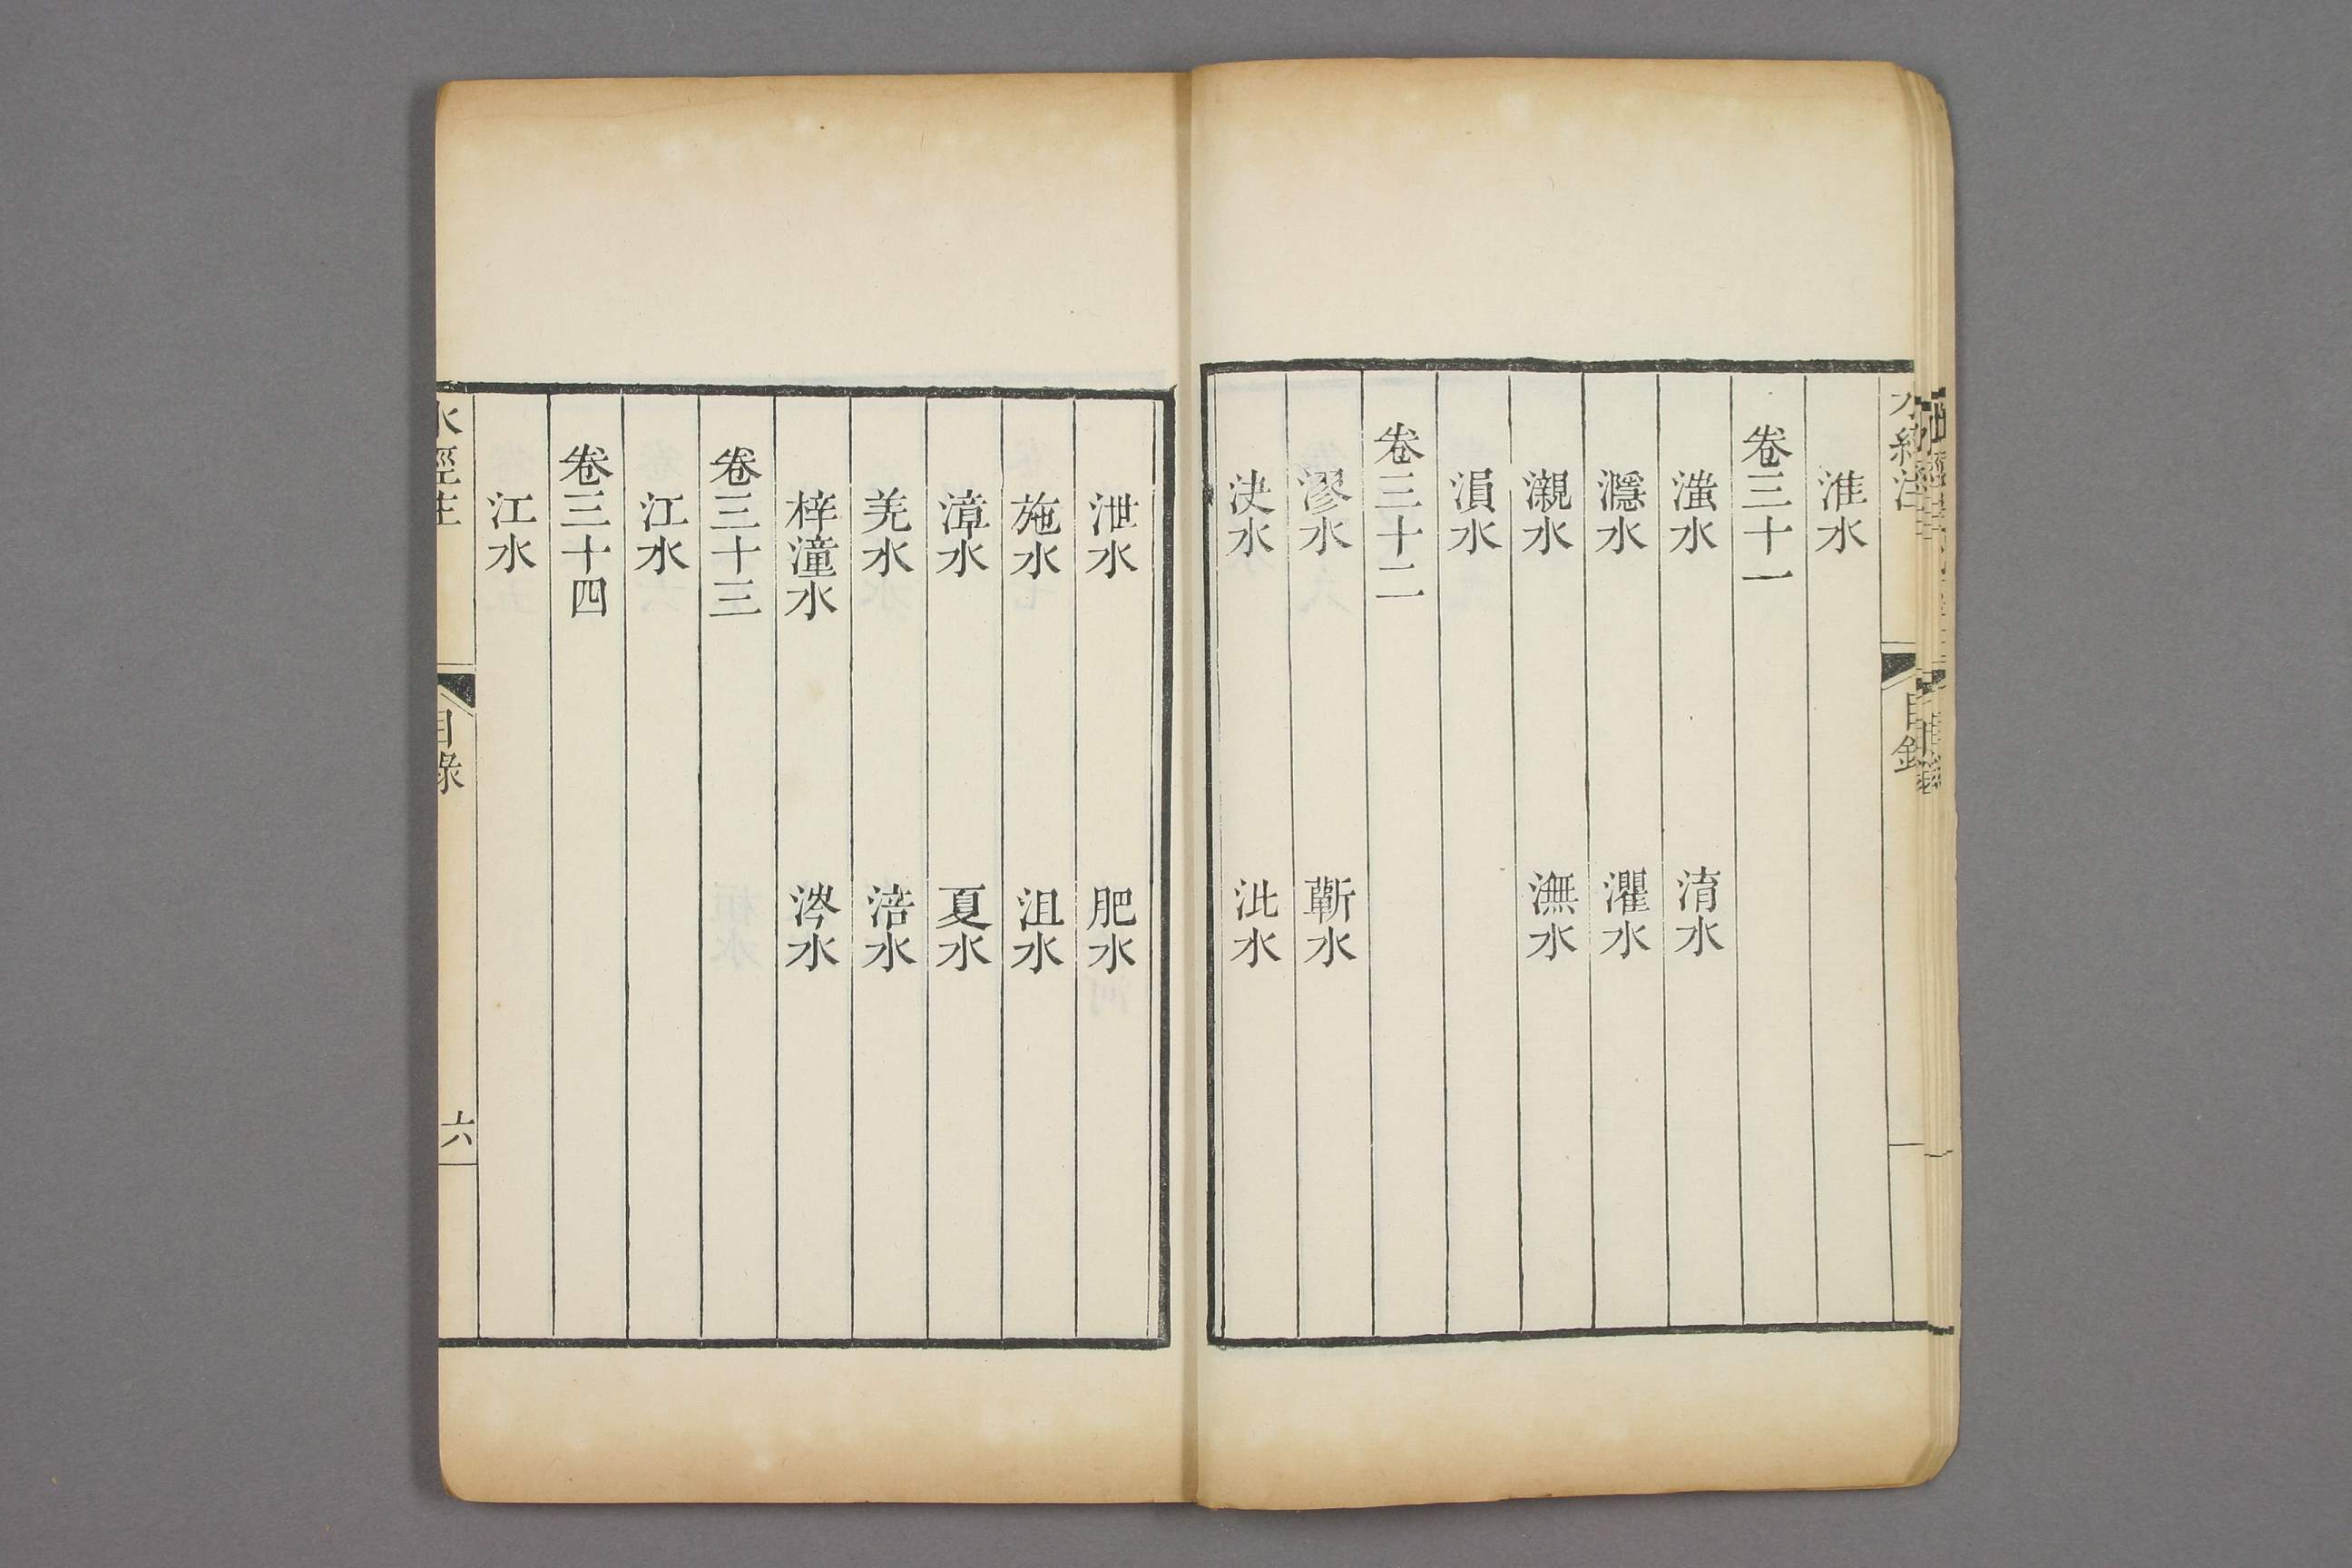 水經注
目錄
淮水
卷三十一
滍水　淯水
濦水　灈水
灈水　潕水
溳水
卷三十二
漻水　蘄水
決水　沘水
泄水　肥水
施水　沮水
漳水　夏水
羌水　涪水
梓潼水　涔水
卷三十三
江水
卷三十四
江水
水經注
目錄
六